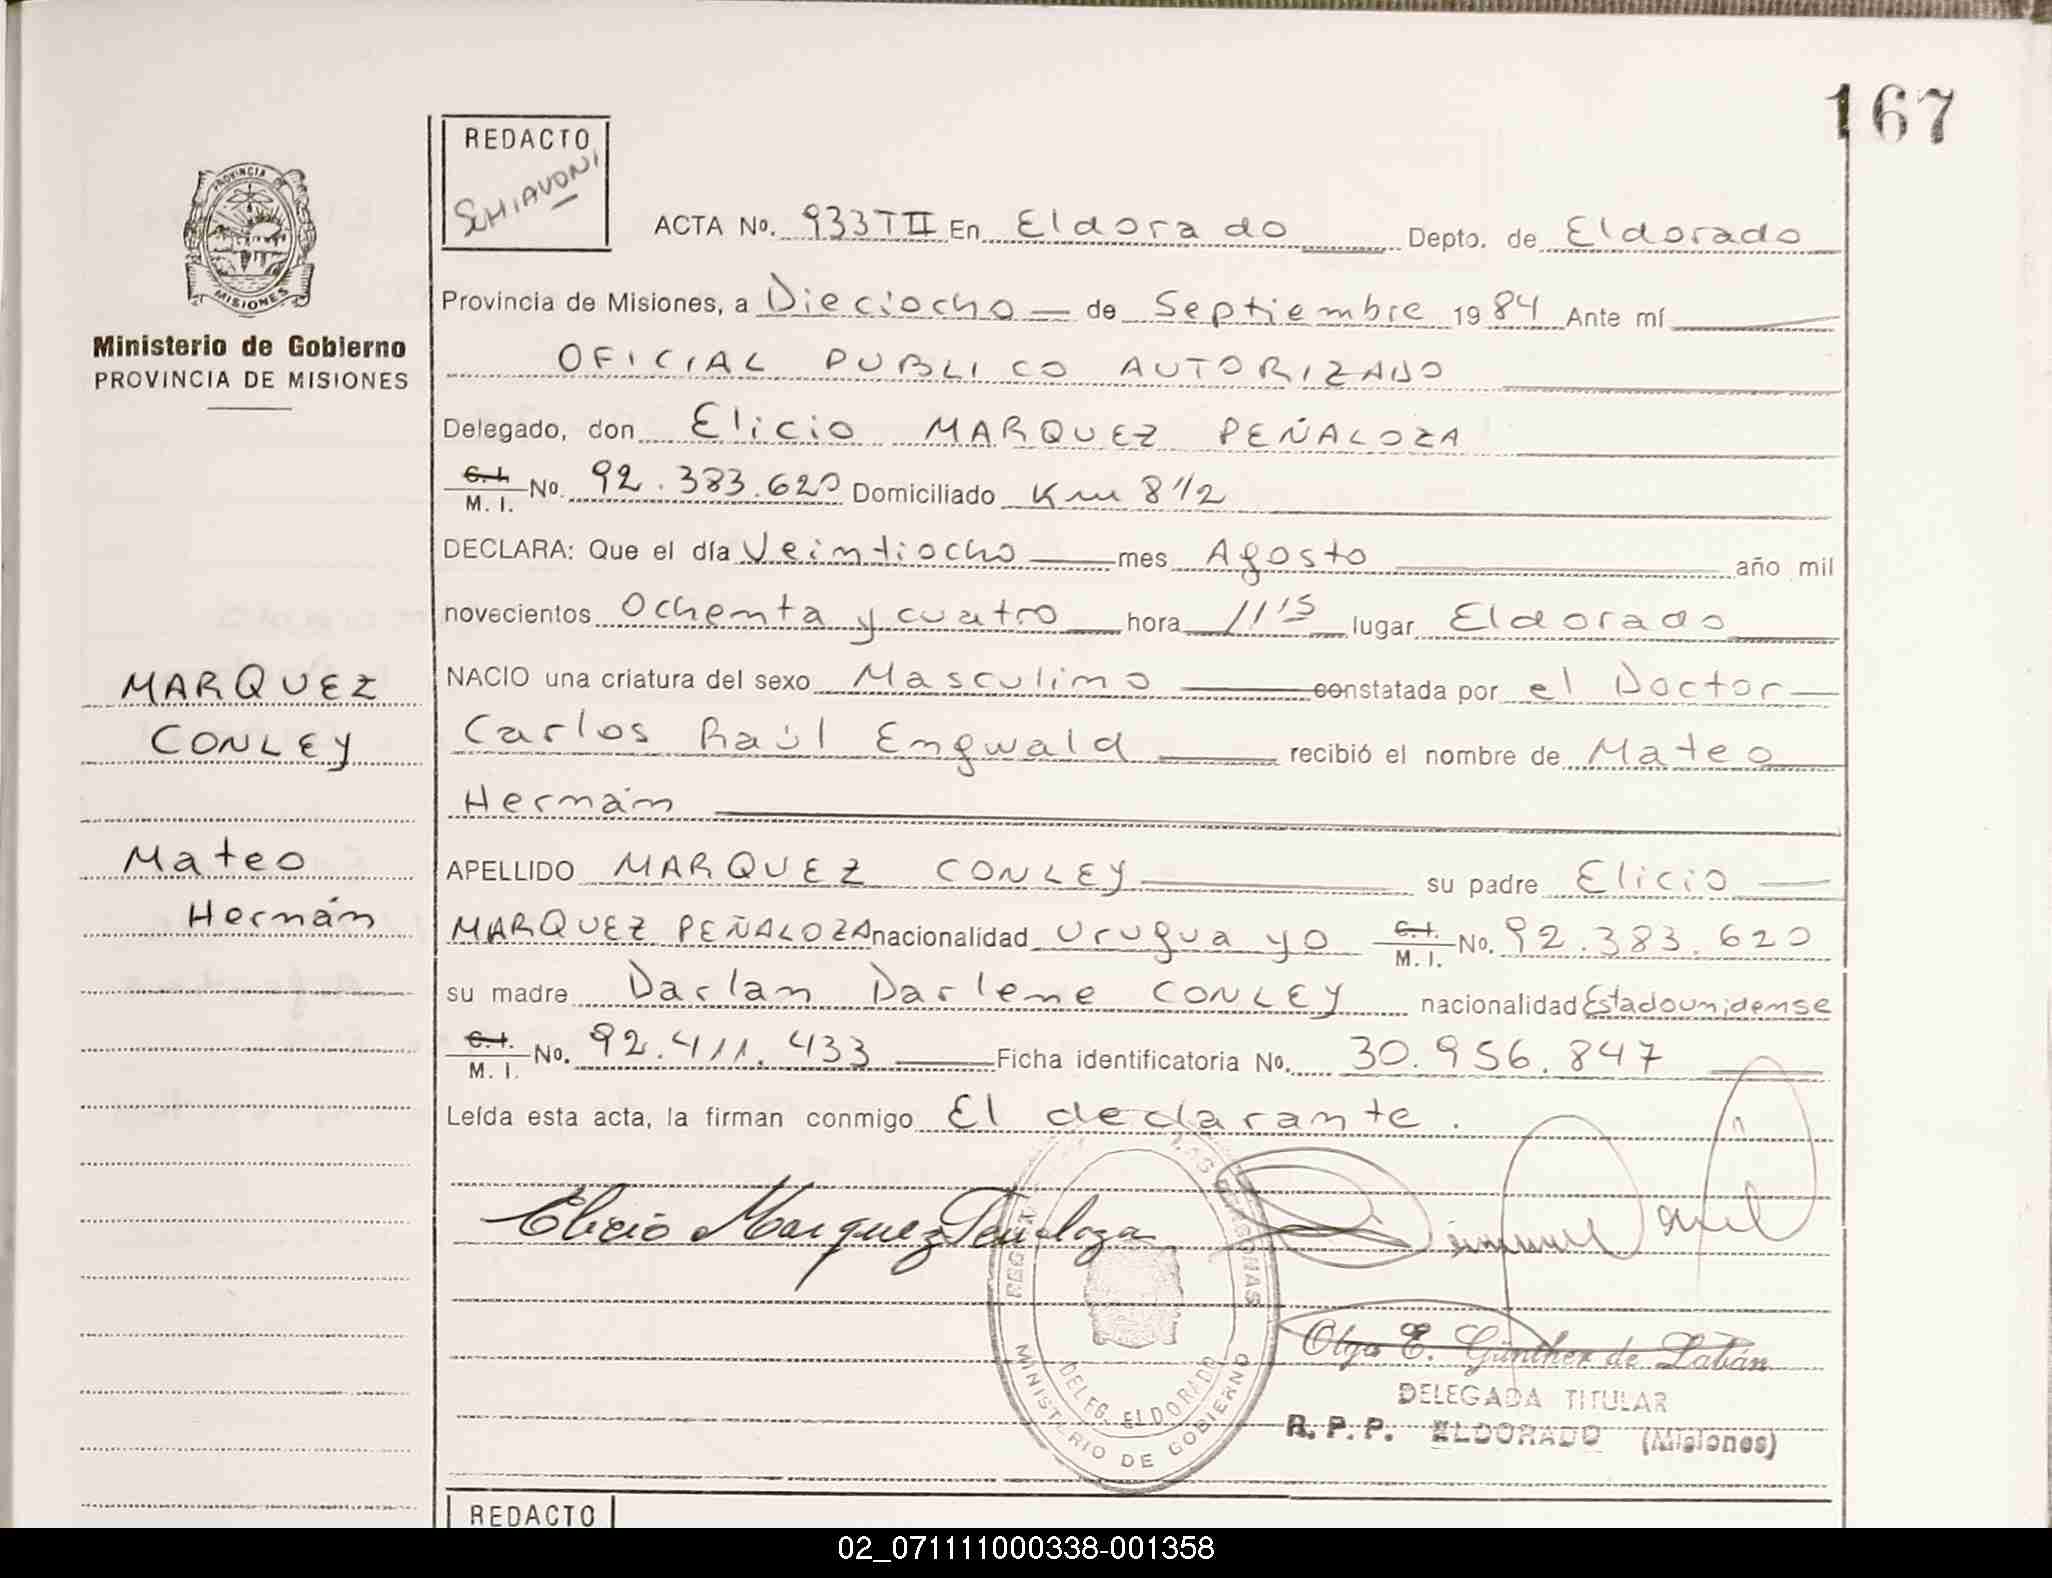 167
REDACTO
SCHIAVONI
ACTA No. 933TII En Eldorado Depto. de Eldorado
PROVINCIA DE MISIONES
Ministerio de Gobierno
PROVINCIA DE MISIONES
Provincia de Misiones, a Dieciocho de Septiembre 1984 Ante mí
OFICIAL PUBLICO AUTORIZADO
Delegado, don Elicio MARQUEZ PEÑALOZA
C. I. M. I. No. 92.383.620 Domiciliado Km 8 1/2
DECLARA: Que el día Veintiocho mes Agosto año mil
novecientos Ochenta y cuatro hora 11'5 lugar Eldorado
NACIO una criatura del sexo Masculino constatada por el Doctor
Carlos Raúl Engwald recibió el nombre de Mateo
Hernán
MARQUEZ
CONLEY
Mateo
Hernán
APELLIDO MARQUEZ CONLEY su padre Elicio
MARQUEZ PEÑALOZA nacionalidad Uruguayo C. I. M. I. No. 92.383.620
su madre Darlan Darlene CONLEY nacionalidad Estadounidense
C. I. M. I. No. 92.411.433 Ficha identificatoria No. 30.956.847
Leída esta acta, la firman conmigo El declarante.
Elicio Marquez Penaloza
MINISTERIO DE GOBIERNO
DELEG. ELDORADO
Olga E. Günther de Labán
DELEGADA TITULAR
R. P. P. ELDORADO (Misiones)
REDACTO
02_071111000338-001358